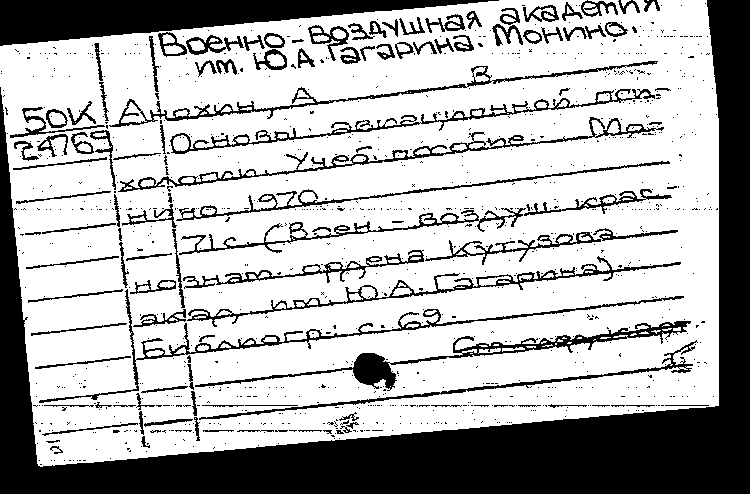 Военно-воздушная академия
им. Ю.А. Гагарина. Монино.
50К Анохин, А В
24769 Основы авиационной пси-
хологии. Учеб. пособие. Мо-
нино, 1970.
71 с. (Воен.-воздуш. крас-
нознам. ордена Кутузова
акад. им. Ю.А. Гагарина).
Библиогр.: с. 69.